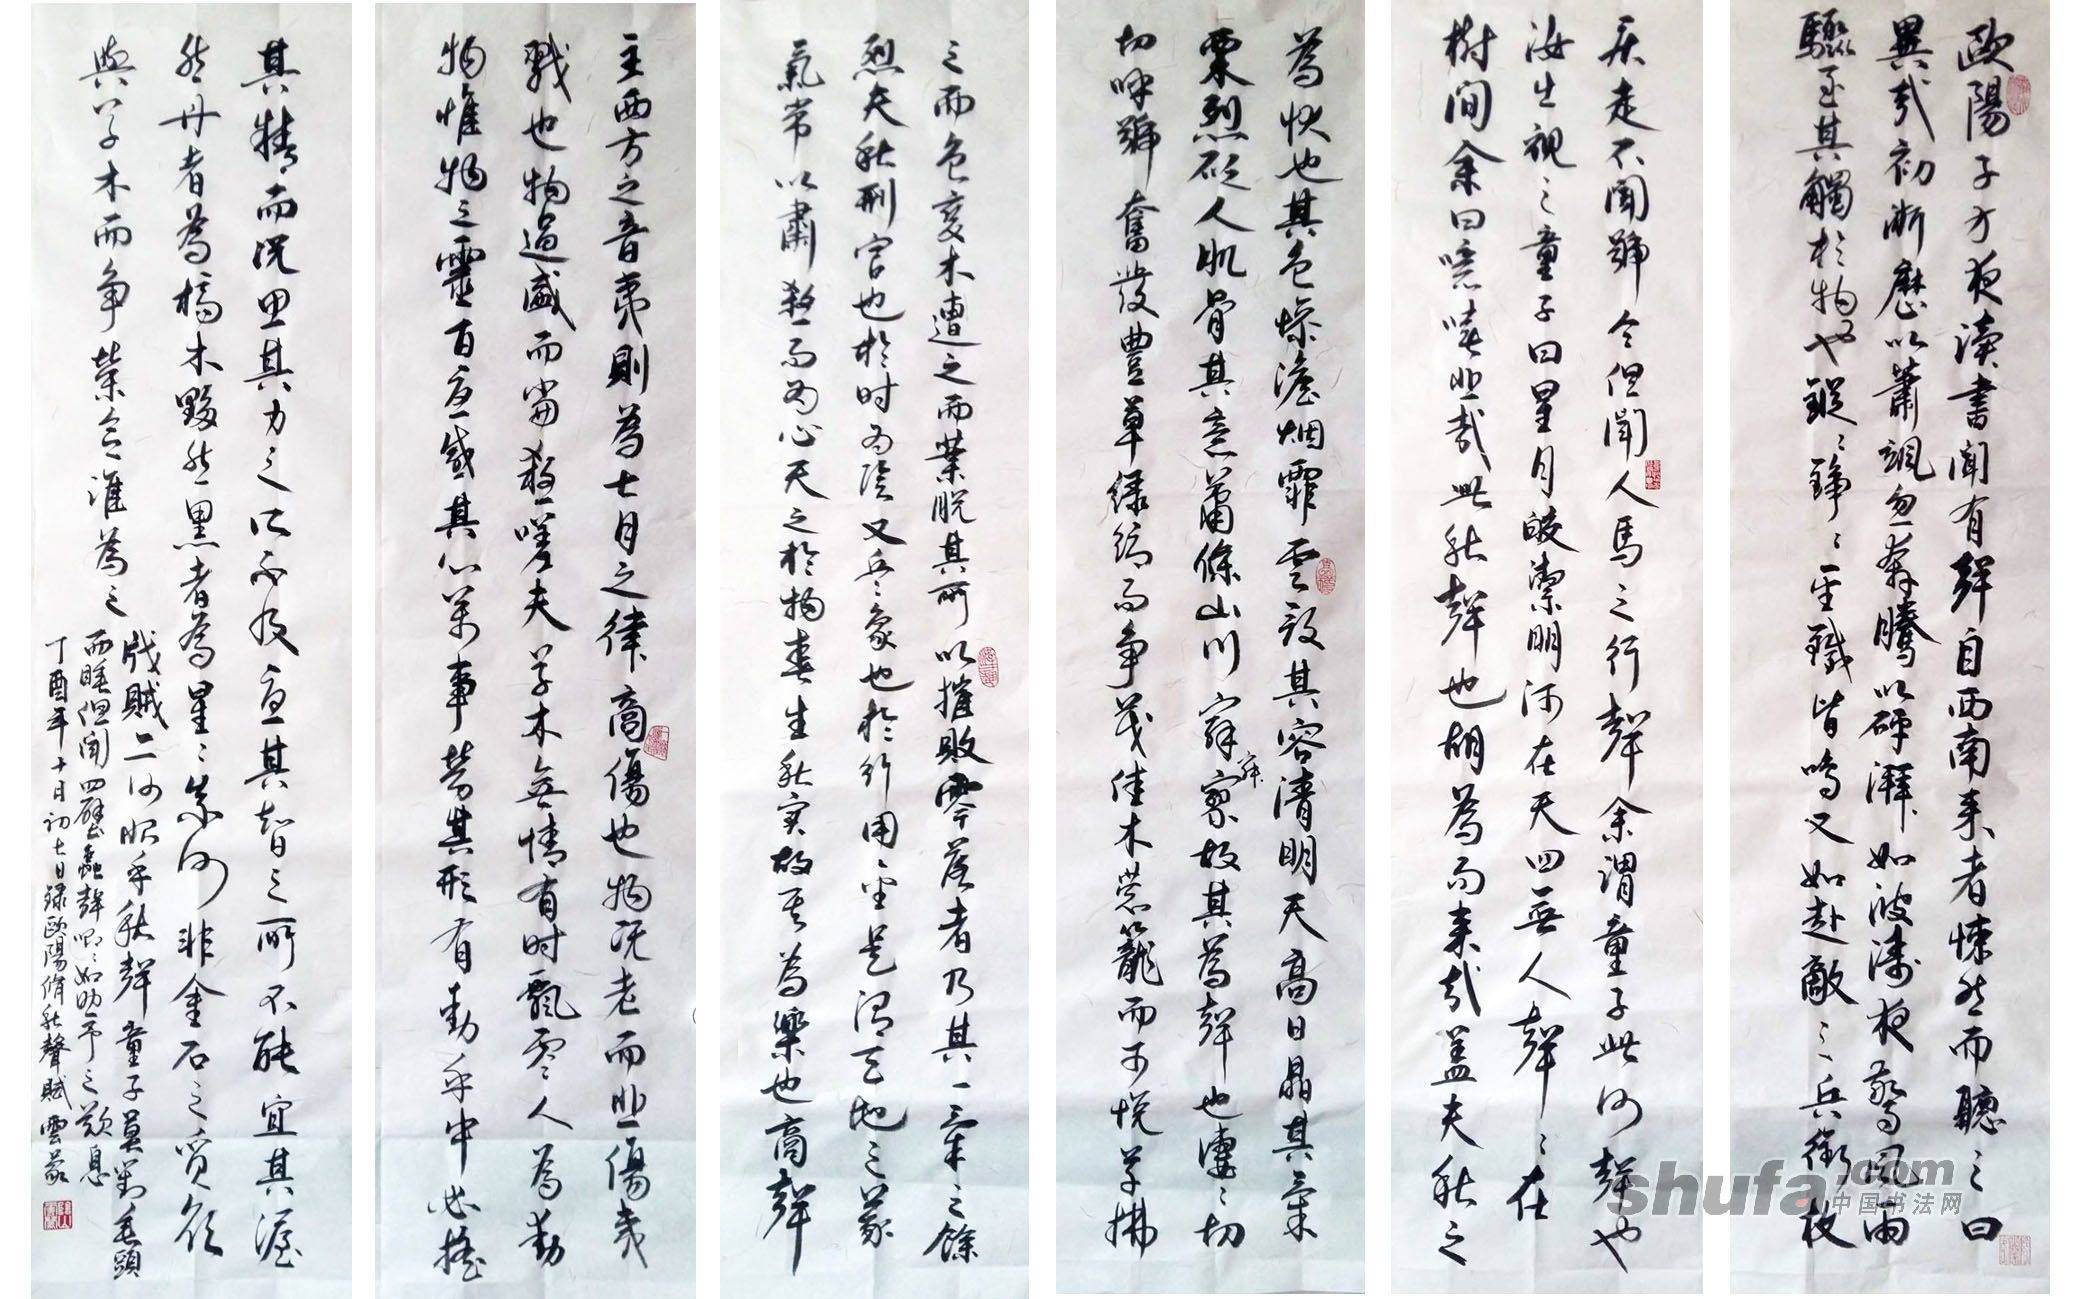 歐陽子方夜讀書聞有聲自西南来者悚然而聽之曰
異哉初淅歷以蕭颯忽奔騰以砰湃如波濤夜驚風雨
驟至其觸於物也鏦〻錚〻金鐵皆鳴又如赴敵之兵銜枚
疾走不聞號令但聞人馬之行聲余謂童子此何聲也
汝出視之童子曰星月皎潔明河在天四無人聲〻在
樹間余曰噫嘻悲哉此秋聲也胡為而来哉蓋夫秋之
為狀也其色慘澹烟霏雲斂其容清明天高日晶其氣
栗烈砭人肌骨其意蕭條山川寂寥故其為聲也淒〻切
切呼號奮發豐草綠縟而爭茂佳木葱籠而可悅草拂
之而色变木遭之而葉脫其所以摧敗零落者乃其一氣之餘
烈夫秋刑官也於时為陰又兵象也於行用金是谓天地之義
氣常以肅殺而為心天之於物春生秋实故其為樂也商聲
主西方之音夷則為七月之律商傷也物既老而悲傷夷
戮也物過盛而當殺嗟夫草木無情有时飄零人為動
物惟物之靈百憂感其心萬事勞其形有動乎中必摇
其精而况思其力之所不及憂其智之所不能宜其渥
然丹者為槁木黟然黑者為星〻奈何非金石之質欲
與草木而爭榮念誰為之
戕賊二何恨乎秋聲童子莫對垂頭
而睡但闻四壁蟲聲唧〻如助予之歎息
丁酉年十月初七日録歐陽脩秋聲賦雲义
shufa.com
中国书法网